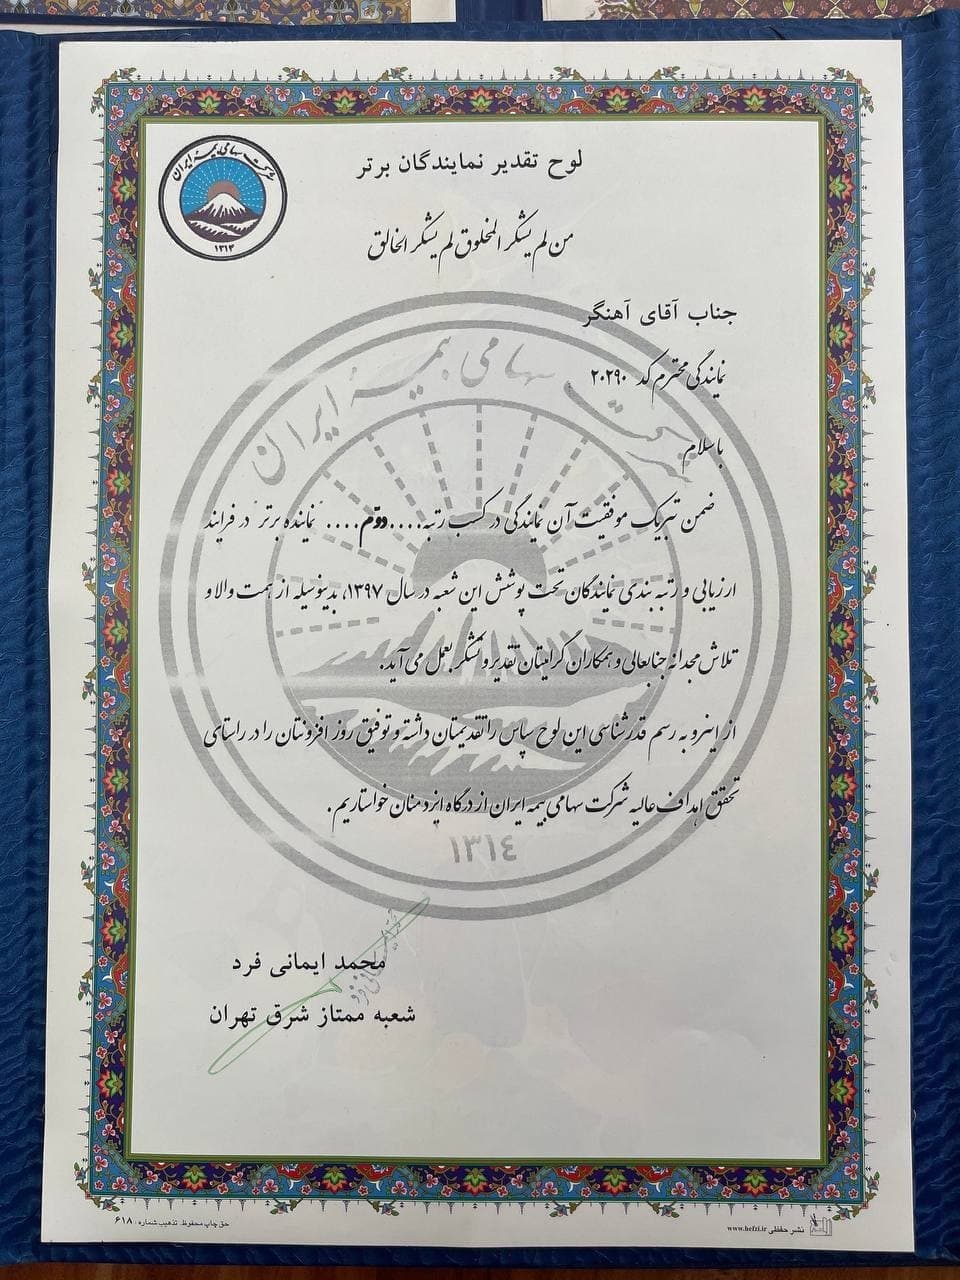 لوح تقدیر نمایندگان برتر
شرکت سهامی بیمه ایران
۱۳۱۴
من لم یشکر المخلوق لم یشکر الخالق
جناب آقای آهنگر
نمایندگی محترم کد ۲۰۲۹۰
باسلام
شرکت سهامی بیمه ایران
ضمن تبریک موفقیت آن نمایندگی در کسب رتبه....دوّم.... نماینده برتر در فرایند
ارزیابی و رتبه بندی نمایندگان تحت پوشش این شعبه در سال ۱۳۹۷، بدینوسیله از همت والا و
تلاش مجدانه جنابعالی و همکاران گرامیتان تقدیر و تشکر بعمل می آید.
از اینرو به رسم قدرشناسی این لوح سپاس را تقدیمتان داشته و توفیق روز افزونتان را در راستای
تحقق اهداف عالیه شرکت سهامی بیمه ایران از درگاه ایزد منان خواستاریم.
۱۳۱٤
محمد ایمانی فرد
شعبه ممتاز شرق تهران
حق چاپ محفوظ. تذهیب شماره: ۶۱۸
نشر حفظی www.hefzi.ir